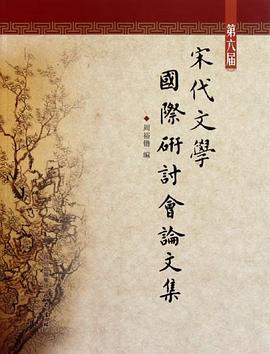 第六届
宋代文學
國際研討會論文集
周裕锴 编